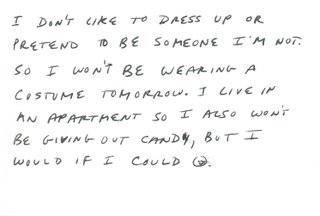 I DON'T LIKE TO DRESS UP OR
PRETEND TO BE SOMEONE I'M NOT.
SO I WON'T BE WEARING A
COSTUME TOMORROW. I LIVE IN
AN APARTMENT SO I ALSO WON'T
BE GIVING OUT CANDY, BUT I
WOULD IF I COULD ☺.